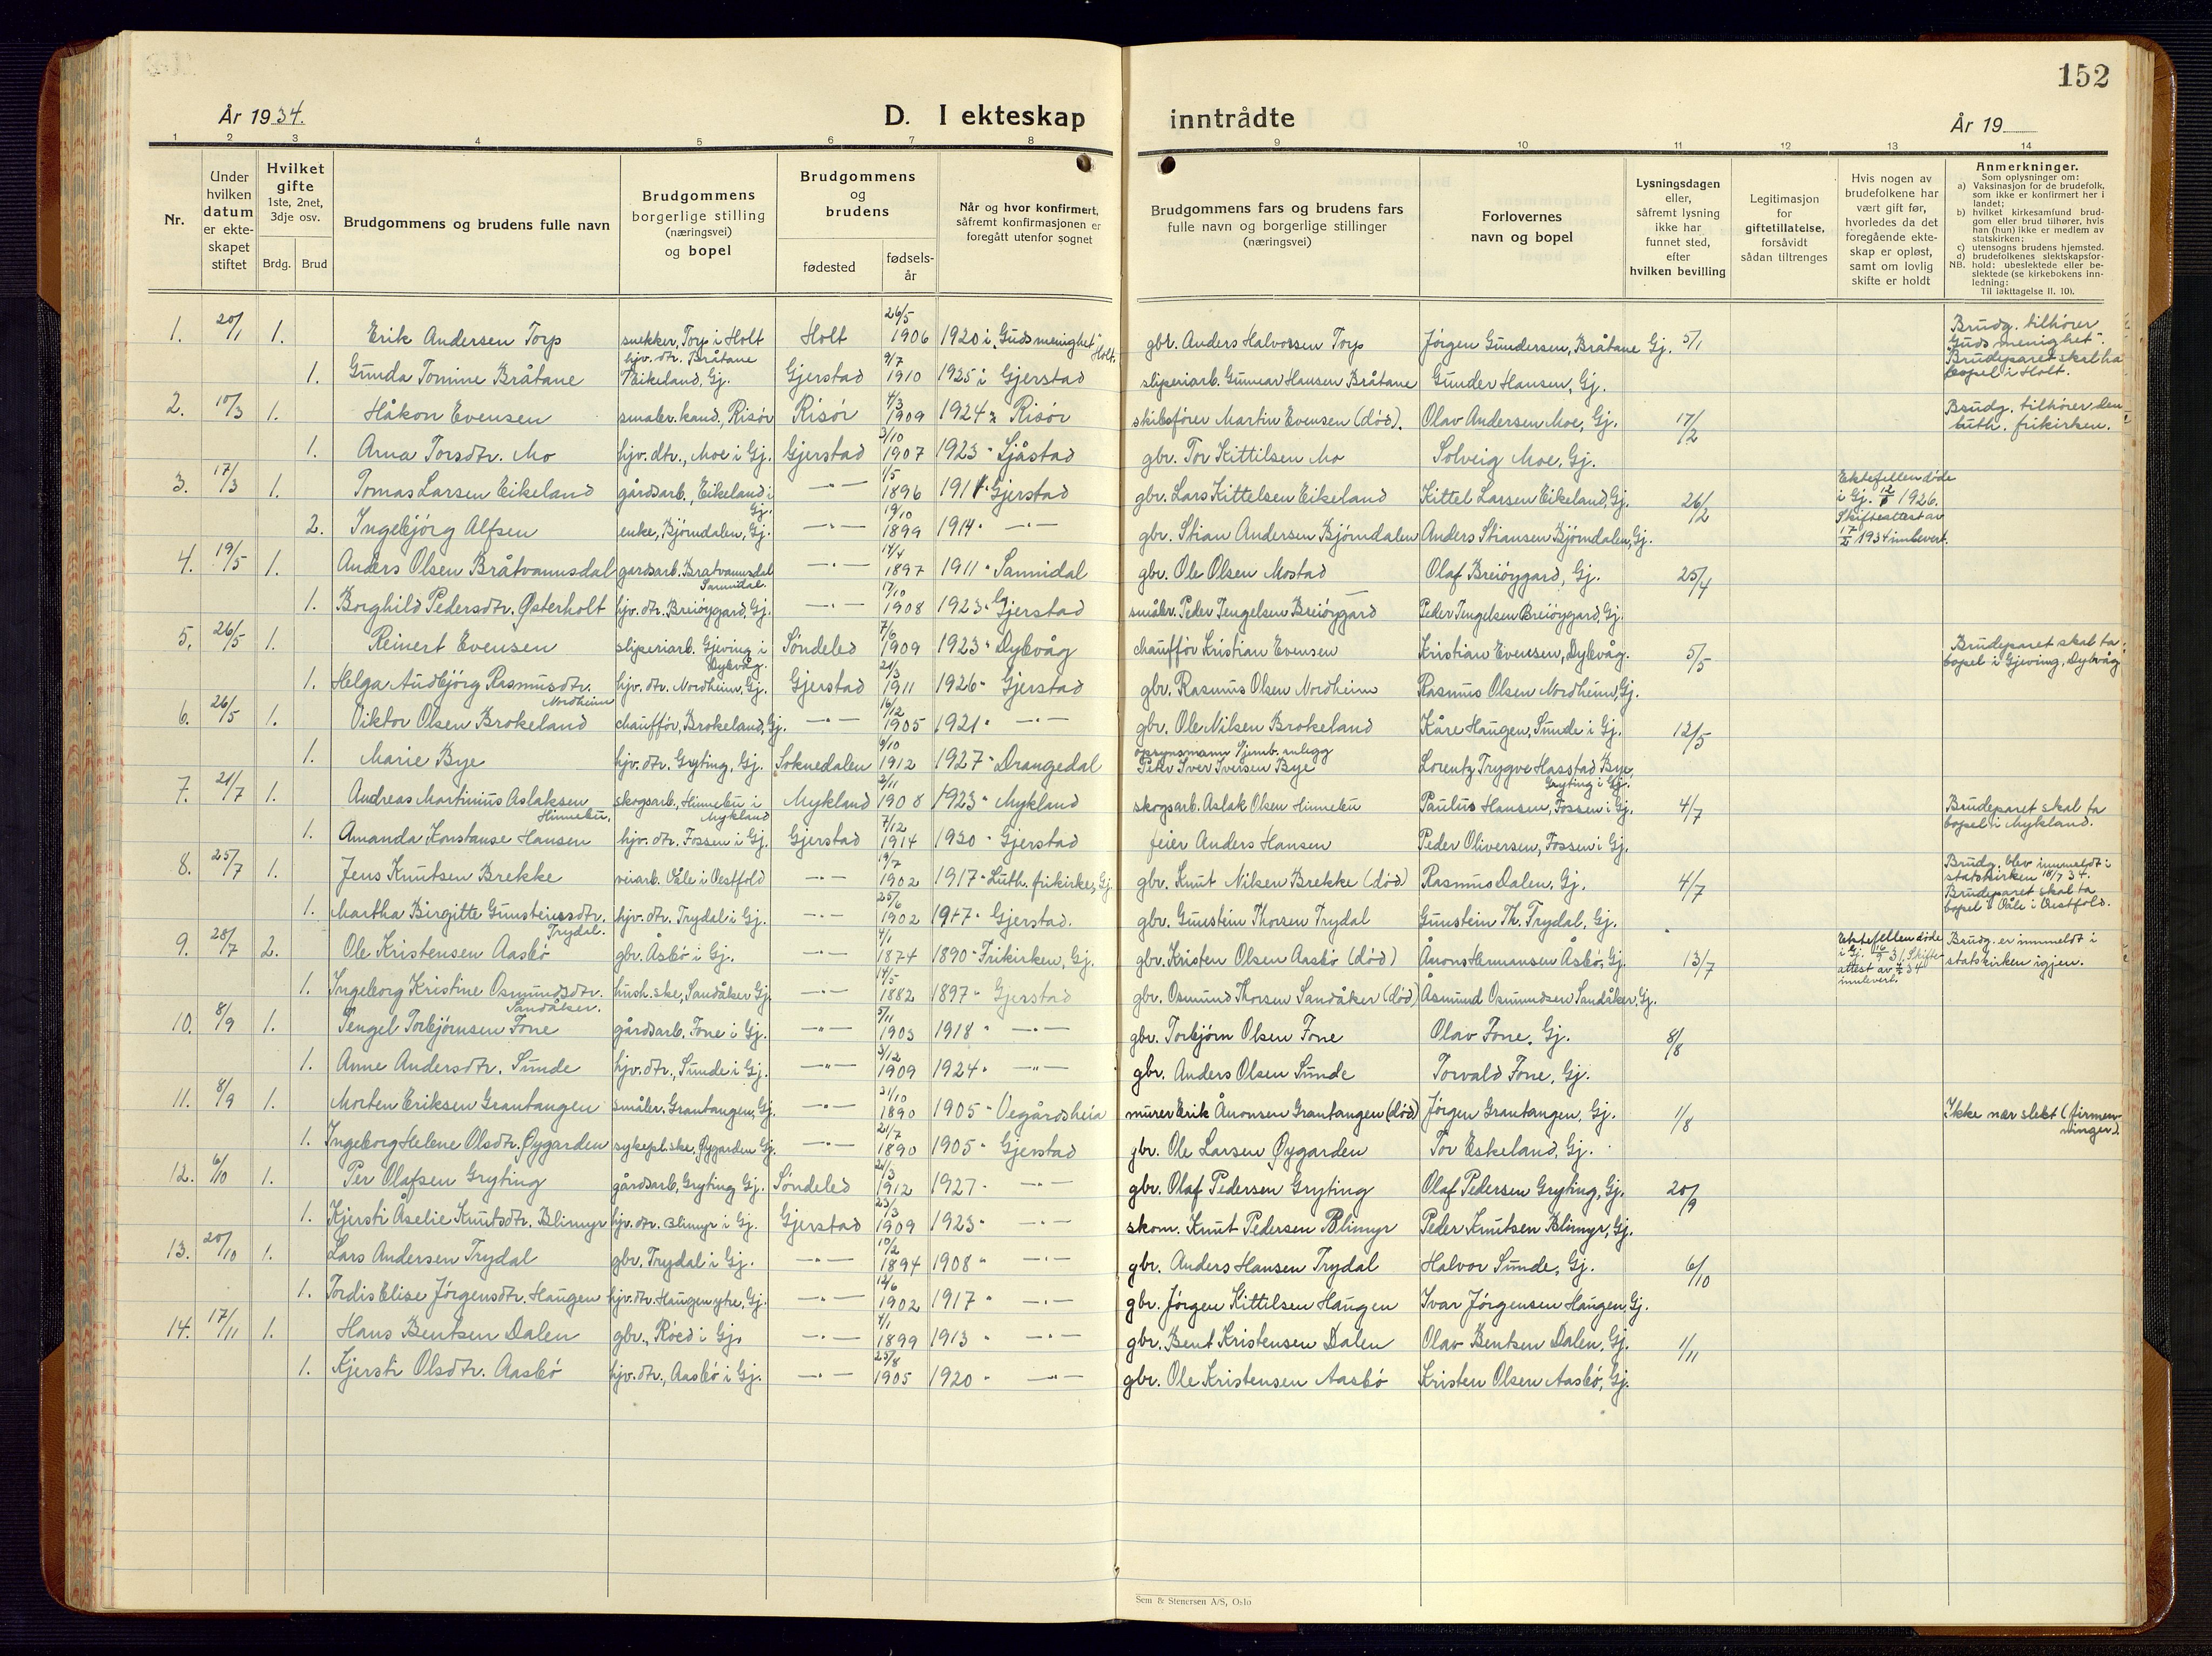 152
År 1934.
D. I ekteskap inntrådte
År 19
1 2 3 4 5 6 7 8 9 10 11 12 13 14
Nr.
Under hvilken datum er ekteskapet stiftet
Hvilket gifte 1ste, 2net, 3dje osv.
Brdg. Brud
Brudgommens og brudens fulle navn
Brudgommens borgerlige stilling (næringsvei) og bopel
Brudgommens og brudens
fødested
fødsels-år
Når og hvor konfirmert, såfremt konfirmasjonen er foregått utenfor sognet
Brudgommens fars og brudens fars fulle navn og borgerlige stillinger (næringsvei)
Forlovernes navn og bopel
Lysningsdagen eller, såfremt lysning ikke har funnet sted, efter hvilken bevilling
Legitimasjon for giftetillatelse, forsåvidt sådan tiltrenges
Hvis nogen av brudefolkene har vært gift før, hvorledes da det foregående ekteskap er opløst, samt om lovlig skifte er holdt
Anmerkninger.
Som oplysninger om:
a) Vaksinasjon for de brudefolk, som ikke er konfirmert her i landet;
b) hvilket kirkesamfund brudgom eller brud tilhører, hvis han (hun) ikke er medlem av statskirken;
c) utensogns brudens hjemsted.
d) brudefolkenes slektskapsforhold: ubeslektede eller beslektede (se kirkebokens innledning:
NB. Til iakttagelse II. 10).
1. 20/1 1. Erik Andersen Torp snekker, Torp i Holt Holt 26/5 1906 1920 i "Guds menighet" Holt. gbr. Anders Halvorsen Torp Jörgen Gundersen, Bråtane Gj. 5/1 Brudg. tilhører "Guds menighet". Brudeparet skal ha bopel i Holt.
1. Gunda Tomine Bråtane hjv. dtr. Bråtane Eikeland, Gj. Gjerstad 9/7 1910 1925 i Gjerstad sliperiarb. Gunnar Hansen Bråtane Gunder Hansen, Gj.
2. 10/3 1. Håkon Evensen småbr. kand., Risör Risör 4/3 1909 1924 " Risör skibsfører Martin Evensen (död). Olav Andersen Moe, Gj. 17/2 Brudg. tilhører den luth. frikirken.
1. Arna Torsdtr. Mo hjv. dtr., Moe i Gj. Gjerstad 3/10 1907 1923 " Sjåstad gbr. Tor Kittilsen Mo Solveig Moe, Gj.
3. 17/3 1. Tomas Larsen Eikeland gårdsarb., Eikeland i Gj. —"— 1/5 1896 1911 " Gjerstad gbr. Lars Kittelsen Eikeland Kittel Larsen Eikeland, Gj. 26/2 Ektefellen döde i Gj. 1926. Skifteattest av 1934 innlevert.
2. Ingebjörg Alfsen enke, Björndalen, Gj. —"— 19/10 1899 1914 " —"— gbr. Stian Andersen Björndalen Anders Stiansen Björndalen, Gj.
4. 19/5 1. Anders Olsen Bråtvannsdal gårdsarb. Bratvannsdal Sannidal. —"— 14/4 1897 1911 " Sannidal gbr. Ole Olsen Mostad Olaf Breiöygard, Gj. 25/4
1. Borghild Pedersdtr. Østerholt hjv. dtr. Breiöygard, Gj. —"— 17/10 1908 1923 " Gjerstad småbr. Peder Tengelsen Breiöygard Peder Tengelsen Breiöygard, Gj.
5. 26/5 1. Reinert Evensen sliperiarb. Gjeving i Dybvåg. Söndeled 7/6 1909 1923 " Dybvåg chaufför Kristian Evensen Kristian Evensen, Dybvåg. 5/5 Brudeparet skal ta bopel i Gjeving, Dybvåg
1. Helga Audbjörg Rasmusdtr. Nordheim hjv. dtr. Nordheim, Gj. Gjerstad 21/3 1911 1926 " Gjerstad gbr. Rasmus Olsen Nordheim Rasmus Olsen Nordheim, Gj.
6. 26/5 1. Viktor Olsen Brokeland chaufför, Brokeland, Gj. —"— 16/12 1905 1921 " —"— gbr. Ole Nilsen Brokeland Kåre Haugen, Sunde i Gj. 12/5
1. Marie Bye hjv. dtr. Gryting, Gj. Soknedalen 9/10 1912 1927 " Drangedal opsynsmann v/jernb. anlegg Peter Iver Iversen Bye Lorentz Trygve Hasstad Bye Gryting i Gj.
7. 21/7 1. Andreas Martinius Aslaksen Hinnebu. skogsarb., Hinnebu i Mykland Mykland 2/11 1908 1923 " Mykland skogsarb. Aslak Olsen Hinnebu Paulus Hansen, Fossen i Gj. 4/7 Brudeparet skal ta bopel i Mykland.
1. Amanda Konstanse Hansen hjv. dtr. Fossen i Gj. Gjerstad 7/12 1914 1930 " Gjerstad feier Anders Hansen Peder Oliversen, Fossen i Gj.
8. 25/7 1. Jens Knutsen Brekke veiarb. Våle i Vestfold —"— 19/7 1902 1917 " Luth. frikirke, Gj. gbr. Knut Nilsen Brekke (död) Rasmus Dalen, Gj. 4/7 Brudg. blev innmeldt i statskirken 18/7 34. Brudeparet skal ta bopel i Våle i Vestfold.
1. Martha Birgitte Gunsteinsdtr. Trydal. hjv. dtr. Trydal i Gj. —"— 25/6 1902 1917 " Gjerstad. gbr. Gunstein Thorsen Trydal Gunstein Th. Trydal, Gj.
9. 28/7 2. Ole Kristensen Aasbö gbr. Åsbö i Gj. —"— 4/1 1874 1890 " Frikirken, Gj. gbr. Kristen Olsen Aasbö (död) Ånon Hermansen Åsbö, Gj. 13/7 Ektefellen döde i Gj. 16/9 31. Skifteattest av 34 innlevert. Brudg. er innmeldt i statskirken igjen.
1. Ingeborg Kristine Osmundsdtr. Sandåker. hush.ske, Sandåker Gj. —"— 14/5 1882 1897 " Gjerstad gbr. Osmund Thorsen Sandåker (död) Åsmund Osmundsen Sandåker, Gj.
10. 8/9 1. Tengel Torbjörnsen Fone gårdsarb. Fone i Gj. —"— 5/11 1903 1918 " —"— gbr. Torbjörn Olsen Fone Olav Fone, Gj. 8/8
1. Anne Andersdtr. Sunde hjv. dtr., Sunde i Gj. —"— 3/12 1909 1924 " —"— gbr. Anders Olsen Sunde Torvald Fone, Gj.
11. 8/9 1. Morten Eriksen Grantangen småbr. Grantangen, Gj. —"— 31/10 1890 1905 " Vegårdsheia murer Erik Ånonsen Grantangen (död) Jörgen Grantangen, Gj. 1/8 Ikke nær slekt (firmenninger).
1. Ingeborg Helene Olsdtr. Øygarden sykepl.ske, Øygarden Gj. —"— 21/7 1890 1905 " Gjerstad gbr. Ole Larsen Øygarden Tor Eskeland, Gj.
12. 6/10 1. Per Olafsen Gryting gårdsarb, Gryting Gj. Söndeled 21/3 1912 1927 " —"— gbr. Olaf Pedersen Gryting Olaf Pedersen Gryting, Gj. 20/9
1. Kjersti Åselie Knutsdtr. Blimyr hjv. dtr. Blimyr i Gj. Gjerstad 23/3 1909 1923 " —"— skom. Knut Pedersen Blimyr Peder Knutsen Blimyr, Gj.
13. 20/10 1. Lars Andersen Trydal gbr. Trydal i Gj. —"— 10/2 1894 1908 " —"— gbr. Anders Hansen Trydal Halvor Sunde, Gj. 6/10
1. Tordis Elise Jörgensdtr. Haugen hjv. dtr. Haugen ytre, Gj. —"— 12/6 1902 1917 " —"— gbr. Jörgen Kittilsen Haugen Ivar Jörgensen Haugen, Gj.
14. 17/11 1. Hans Bentsen Dalen gbr., Röed i Gj. —"— 4/1 1899 1913 " —"— gbr. Bent Kristensen Dalen Olav Bentsen Dalen, Gj. 1/11
1. Kjersti Olsdtr. Aasbö hjv. dtr., Aasbö i Gj. —"— 25/8 1905 1920 " —"— gbr. Ole Kristensen Aasbö Kristen Olsen Aasbö, Gj.
Sem & Stenersen A/S, Oslo